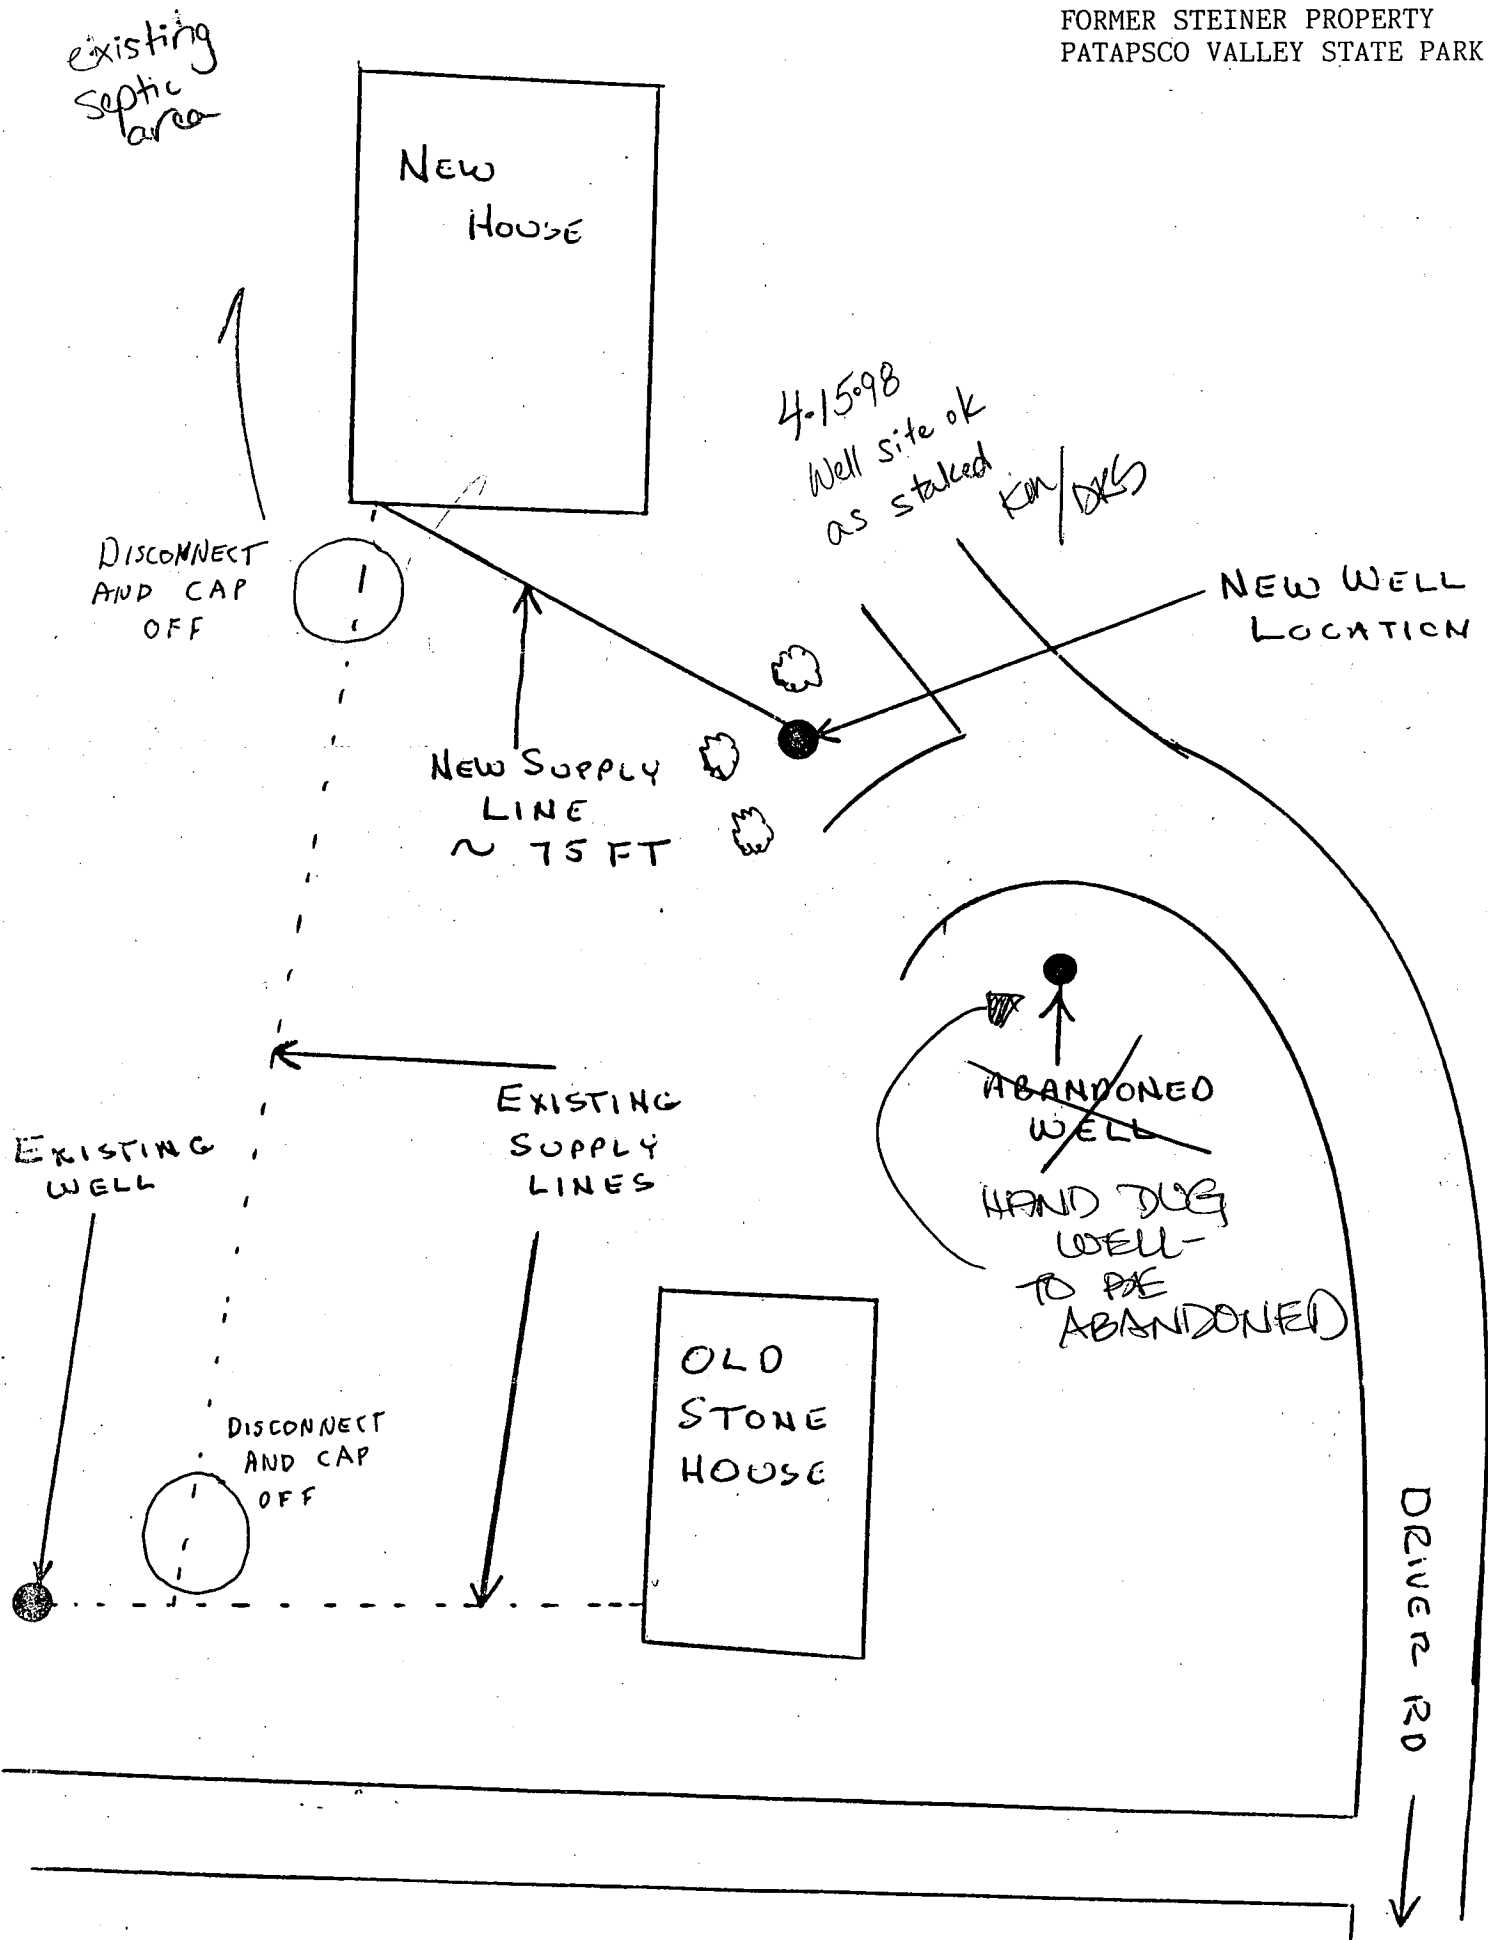 FORMER STEINER PROPERTY
PATAPSCO VALLEY STATE PARK
existing
septic
area
NEW
HOUSE
4.15.98
Well site ok
as staked
KM/DKS
DISCONNECT
AND CAP
OFF
NEW WELL
LOCATION
NEW SUPPLY
LINE
~ 75 FT
ABANDONED
WELL
HAND DUG
WELL-
TO BE
ABANDONED
EXISTING
SUPPLY
LINES
EXISTING
WELL
OLD
STONE
HOUSE
DISCONNECT
AND CAP
OFF
DRIVER RD